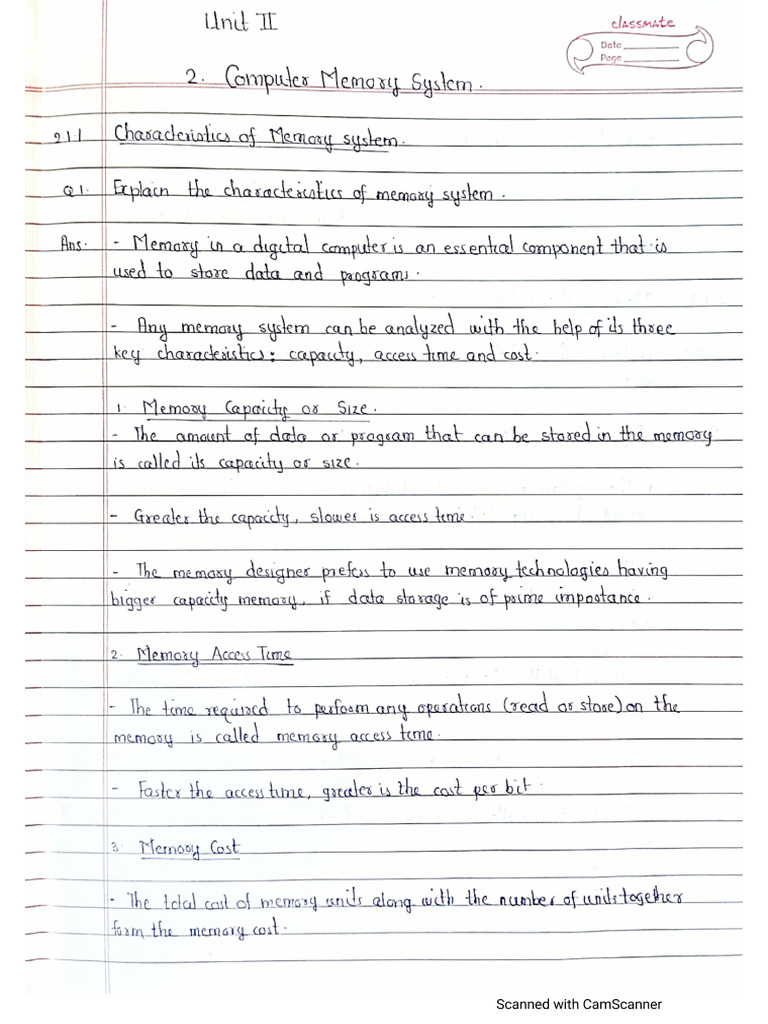 Unit II
classmate
Date
Page
2. Computer Memory System.
2.1.1 Characteristics of Memory system.
Q1. Explain the characteristics of memory system.
Ans. - Memory in a digital computer is an essential component that is
used to store data and programs.
- Any memory system can be analyzed with the help of its three
key characteristics: capacity, access time and cost.
1. Memory Capacity or Size.
- The amount of data or program that can be stored in the memory
is called its capacity or size.
- Greater the capacity, slower is access time.
- The memory designer prefers to use memory technologies having
bigger capacity memory, if data storage is of prime impnotance.
2. Memory Access Time
- The time required to perform any operations (read or store) on the
memory is called memory access time.
- Faster the access time, greater is the cost per bit.
3. Memory Cost
- The total cost of memory units along with the number of units together
form the memory cost.
Scanned with CamScanner